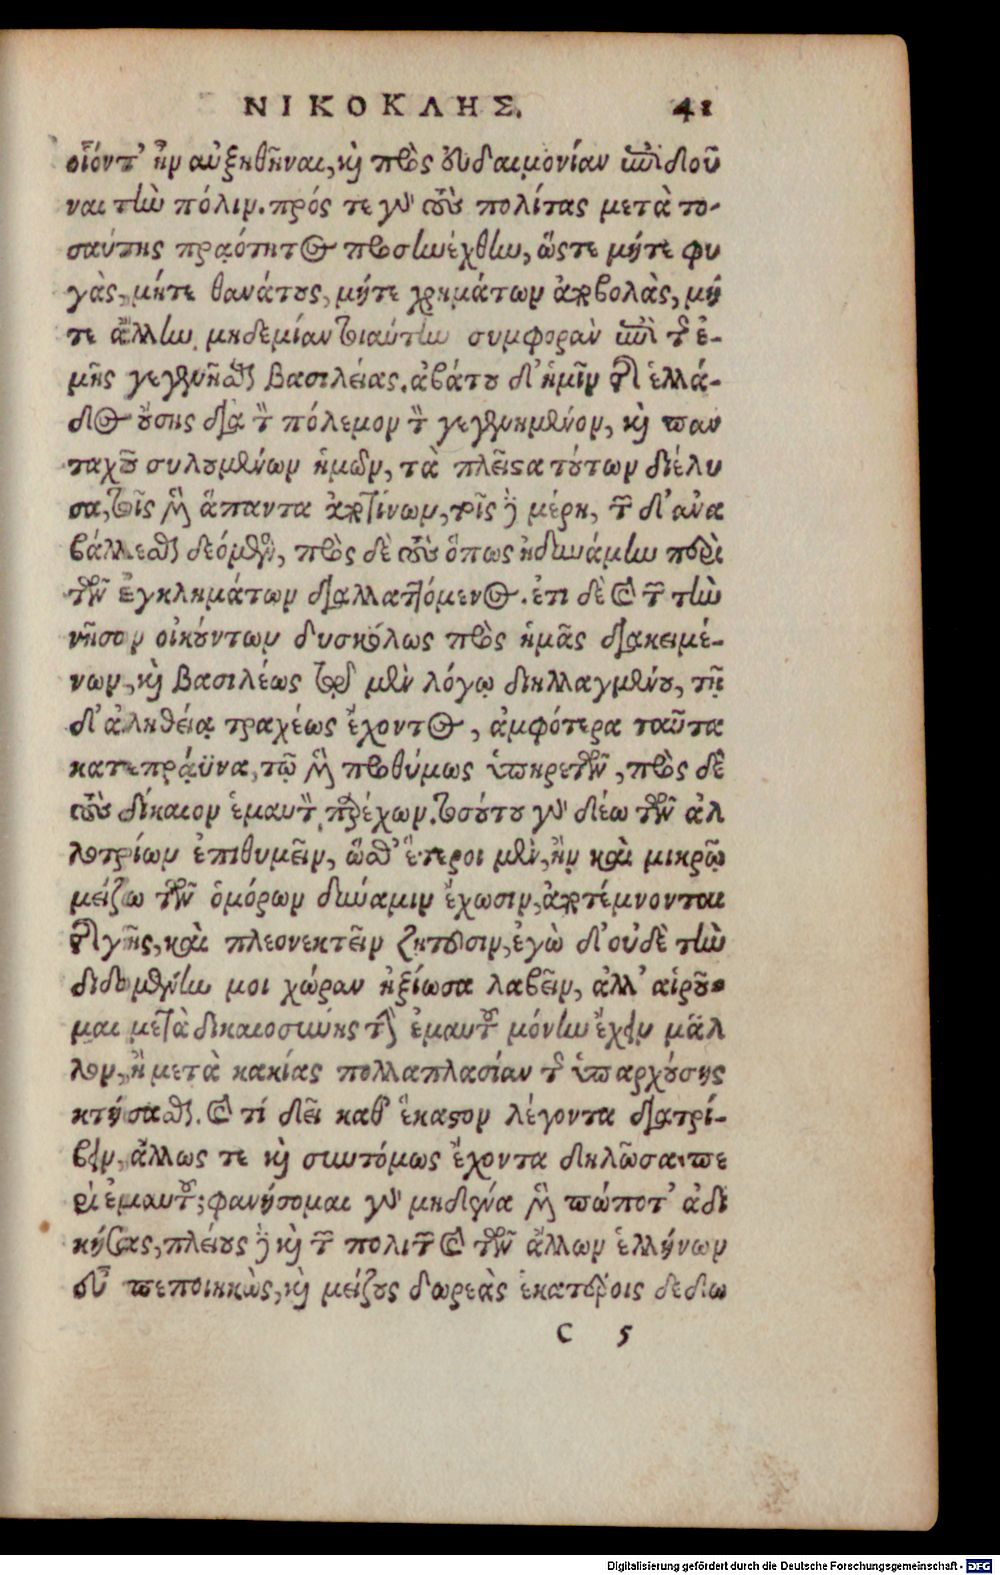 ΝΙΚΟΚΛΗΣ. 41
οἷόντ' ἦν αὐξηθῆναι, καὶ πρὸς εὐδαιμονίαν ἐπιδοῦ
ναι τὴν πόλιν. πρός τε γὰρ τοὺς πολίτας μετὰ το-
σαύτης πρᾳότητος προσηνέχθην, ὥστε μήτε φυ
γὰς, μήτε θανάτους, μήτε χρημάτων ἀποβολὰς, μή
τε ἄλλην μηδεμίαν τοιαύτην συμφορὰν ἐπὶ τῆς ἐ-
μῆς γεγενῆσθαι βασιλείας. ἀβάτου δ' ἡμῖν τῆς ἑλλά-
δος οὔσης διὰ τὸν πόλεμον τὸν γεγενημένον, καὶ παν
ταχοῦ συλουμένων ἡμῶν, τὰ πλεῖστα τούτων διέλυ
σα, τοῖς μὲν ἅπαντα ἀποτίνων, τοῖς δὲ μέρη, τῶν δ' ἀνα
βάλλεσθαι δεόμενος, πρὸς δὲ τοὺς ὅπως ἠδυνάμην περὶ
τῶν ἐγκλημάτων διαλλαττόμενος. ἔτι δὲ καὶ τῶν τὴν
νῆσον οἰκούντων δυσκόλως πρὸς ἡμᾶς διακειμέ-
νων, καὶ βασιλέως τῷ μὲν λόγῳ διηλλαγμένου, τῇ
δ' ἀληθείᾳ τραχέως ἔχοντος, ἀμφότερα ταῦτα
κατεπράϋνα, τῷ μὲν προθύμως ὑπηρετῶν, πρὸς δὲ
τοὺς δίκαιον ἐμαυτὸν παρέχων. τοσούτου γὰρ δέω τῶν ἀλ
λοτρίων ἐπιθυμεῖν, ὥσθ' ἕτεροι μὲν, ἢν καὶ μικρῷ
μείζω τῶν ὁμόρων δύναμιν ἔχωσιν, ἀποτέμνονται
τῆς γῆς, καὶ πλεονεκτεῖν ζητοῦσιν, ἐγὼ δ' οὐδὲ τὴν
διδομένην μοι χώραν ἠξίωσα λαβεῖν, ἀλλ' αἱροῦ-
μαι μετὰ δικαιοσύνης τὴν ἐμαυτοῦ μόνην ἔχειν μᾶλ
λον, ἢ μετὰ κακίας πολλαπλασίαν τῆς ὑπαρχούσης
κτήσασθαι. καὶ τί δεῖ καθ' ἕκαστον λέγοντα διατρί-
βειν, ἄλλως τε καὶ συντόμως ἔχοντα δηλῶσαι πε
ρὶ ἐμαυτοῦ; φανήσομαι γὰρ μηδένα μὲν πώποτ' ἀδι
κήσας, πλείους δὲ καὶ τῶν πολιτῶν καὶ τῶν ἄλλων ἑλλήνων
εὖ πεποιηκὼς, καὶ μείζους δωρεὰς ἑκατέροις δεδω
C 5
Digitalisierung gefördert durch die Deutsche Forschungsgemeinschaft - DFG